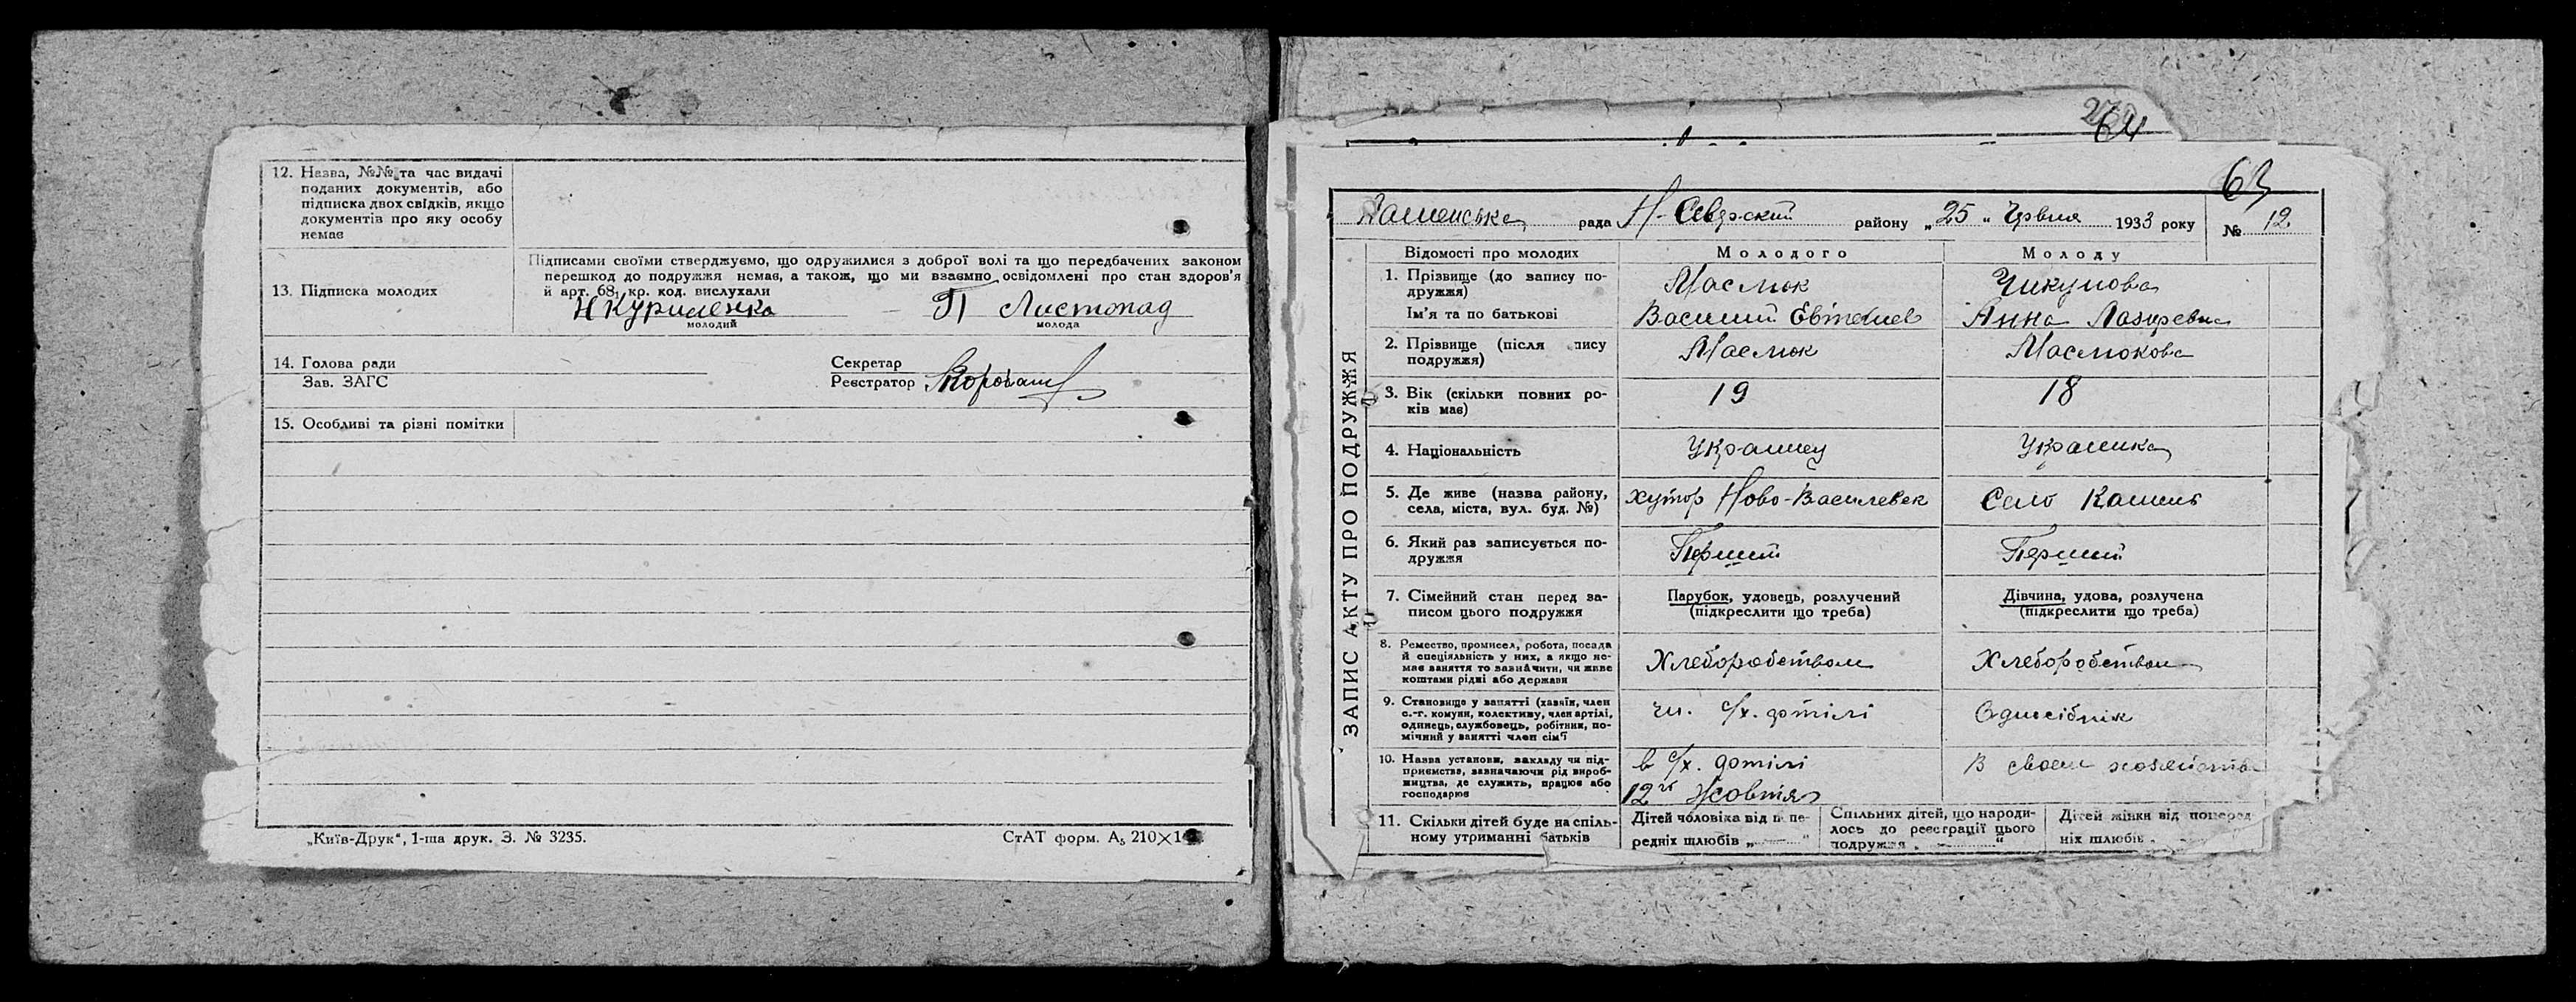 12. Назва, №№ та час видачі
поданих документів, або
підписка двох свідків, якщо
документів про яку особу
немає
Підписами своїми стверджуємо, що одружилися з доброї волі та що передбачених законом
перешкод до подружжя немає, а також, що ми взаємно освідомлені про стан здоров'я
й арт. 68₁ кр. код. вислухали
13. Підписка молодих
Н Куриленко П Листопад
молодий молода
14. Голова ради Секретар
Зав. ЗАГС Реєстратор
15. Особливі та різні помітки
„Київ-Друк“, 1-ша друк. З. № 3235. СтАТ форм. А₅ 210×1
64
63
рада Н-Сєверский району „25“ Червня 1933 року № 12
ЗАПИС АКТУ ПРО ПОДРУЖЖЯ
Відомості про молодих Молодого Молоду
1. Прізвище (до запису по-
дружжя) Маслюк Чикунова
Ім'я та по батькові Василий Анна Лазаревна
2. Прізвище (після пису
подружжя) Маслюк Маслюкова
3. Вік (скільки повних ро-
ків має) 19 18
4. Національність Українец Українка
5. Де живе (назва району,
села, міста, вул. буд. №) хутор Ново-Василевск Село Камень
6. Який раз записується по-
дружжя Перший Перший
7. Сімейний стан перед за-
писом цього подружжя
Парубок, удовець, розлучений
(підкреслити що треба)
Дівчина, удова, розлучена
(підкреслити що треба)
8. Ремество, промисел, робота, посада
й спеціяльність у них, а якщо не-
має заняття то зазначити, чи живе
коштами рідні або держави
Хлеборобством Хлеборобством
9. Становище у занятті (хазяїн, член
с.-г. комуни, колективу, член артілі,
одинець, службовець, робітник, по-
мічний у занятті член сім'ї
чл. с/х. артілі Односібнік
10. Назва установи, закладу чи під-
приємства, зазначаючи рід вироб-
ництва, де служить, працює або
господарює
в с/х. артілі
12 Жовтня
В своем хозяйстве
11. Скільки дітей буде на спіль-
ному утриманні батьків
Дітей чоловіка від пе-
редніх шлюбів „ “
Спільних дітей, що народи-
лось до реєстрації цього
подружжя „ “
Дітей жінки від поперед
ніх шлюбів „